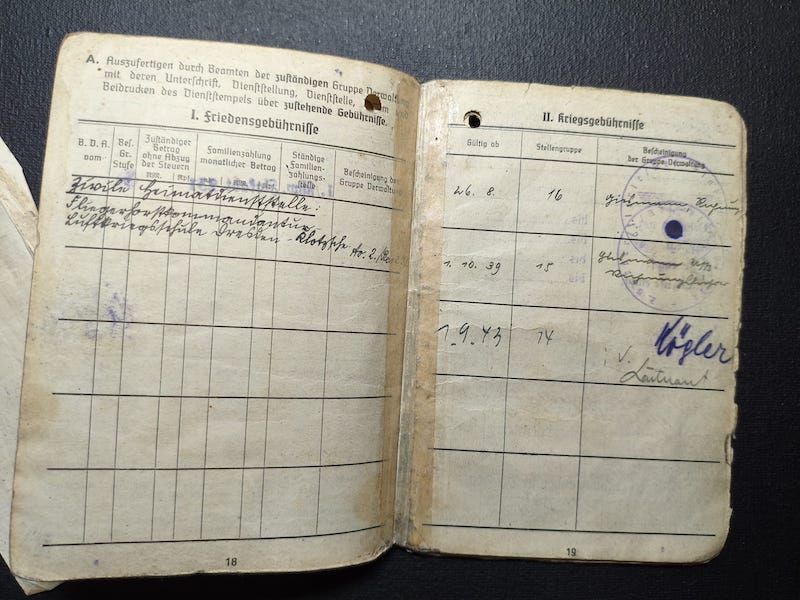 A. Auszufertigen durch Beamten der zuständigen Gruppe Verwaltung
mit deren Unterschrift, Dienststellung, Dienststelle, und
Beidrucken des Dienststempels über zustehende Gebührnisse.
I. Friedensgebührnisse
B. D. A.
vom
Bes.
Gr.
Stufe
Zuständiger
Betrag
ohne Abzug
der Steuern
RM. Rpf.
Familienzahlung
monatlicher Betrag
RM.
Ständige
Familien-
Zahlungs-
stelle
Bescheinigung der
Gruppe Verwaltung
Zivile Heimatdienststelle:
Fliegerhorstkommandantur
Luftkriegsschule Dresden - Klotzsche
18
II. Kriegsgebührnisse
Gültig ab
Stellengruppe
Bescheinigung
der Gruppe Verwaltung
26. 8. 16
1. 10. 39 15
1. 9. 43 14 Kögler
Leutnant
19